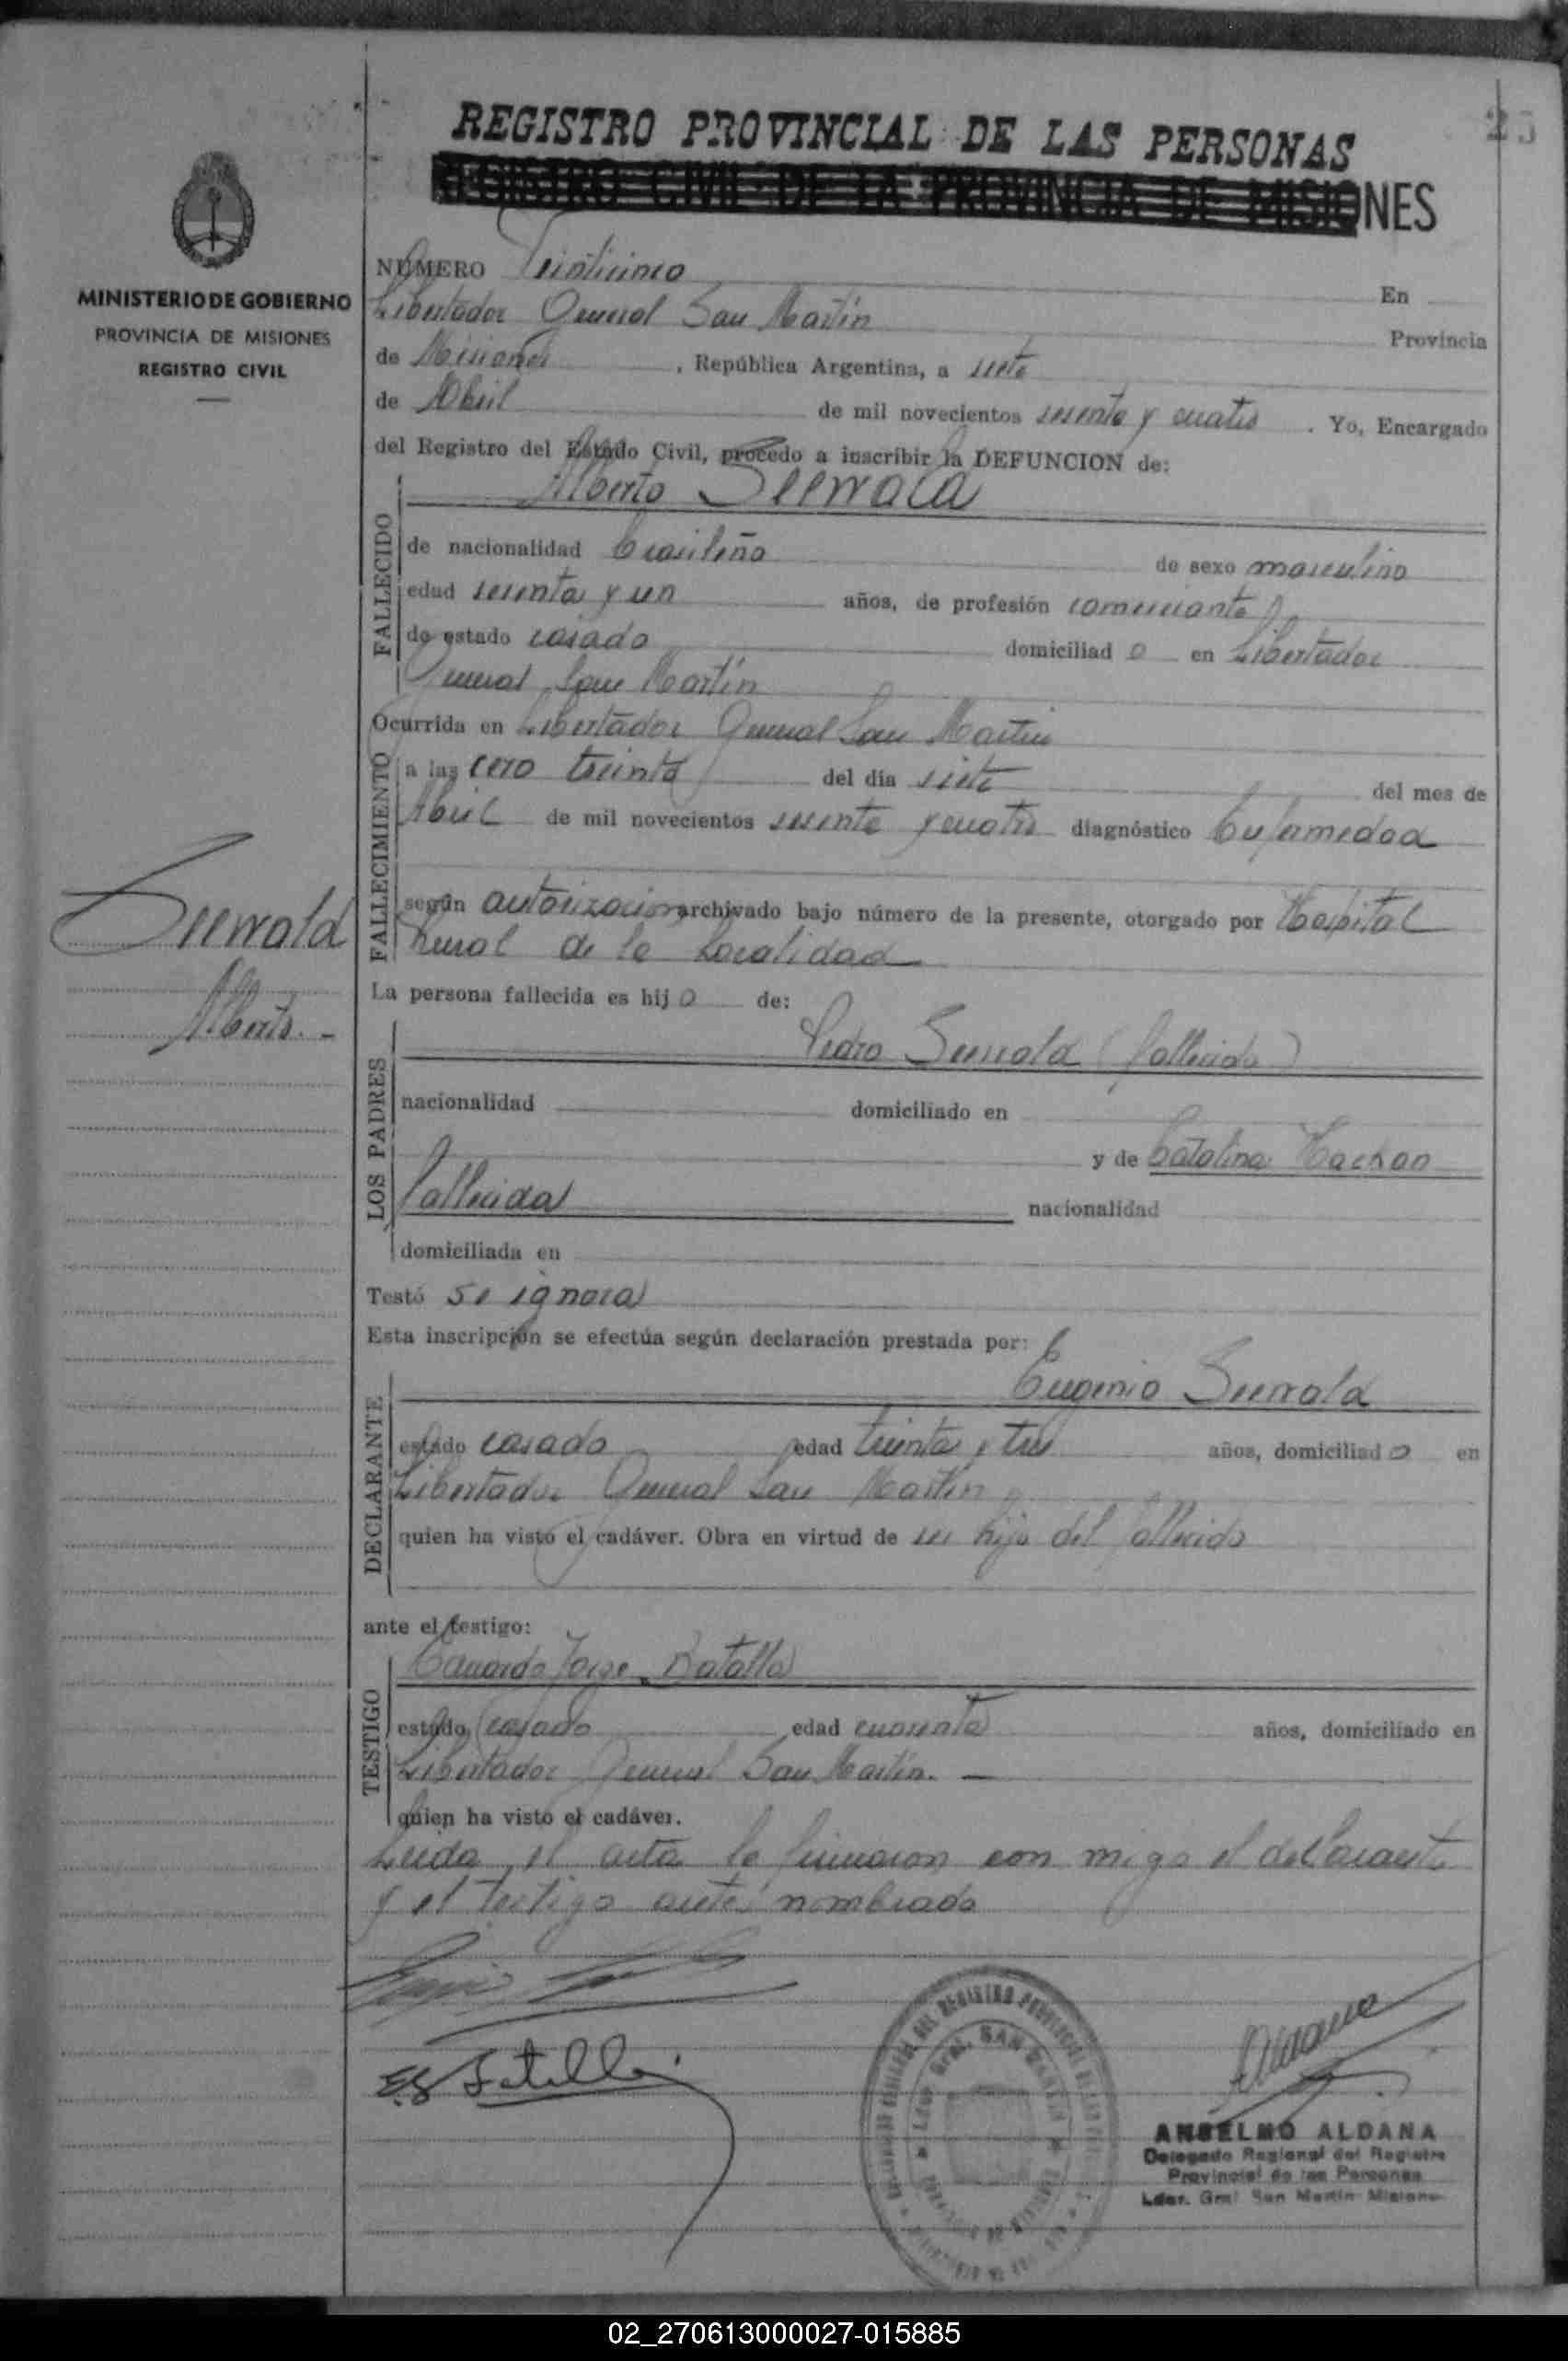 REGISTRO PROVINCIAL DE LAS PERSONAS
REGISTRO CIVIL DE LA PROVINCIA DE MISIONES
MINISTERIO DE GOBIERNO
PROVINCIA DE MISIONES
REGISTRO CIVIL
NUMERO En
Libertador General San Martín Provincia
de Misiones, República Argentina, a siete
de Abril de mil novecientos sesenta y cuatro. Yo, Encargado
del Registro del Estado Civil, procedo a inscribir la DEFUNCION de:
Alberto Seewald
FALLECIDO
de nacionalidad brasileño de sexo masculino
edad sesenta y un años, de profesión comerciante
de estado casado domiciliado en Libertador
General San Martín
Ocurrida en Libertador General San Martín
FALLECIMIENTO
a las cero treinta del día siete del mes de
Abril de mil novecientos sesenta y cuatro diagnóstico Enfermedad
según autorizacion archivado bajo número de la presente, otorgado por Hospital
Rural de la Localidad
Seewald
Alberto.-
La persona fallecida es hijo de:
LOS PADRES
Pedro Seewald (fallecido)
nacionalidad domiciliado en
y de Catalina
fallecida nacionalidad
domiciliada en
Testó se ignora
Esta inscripción se efectúa según declaración prestada por:
DECLARANTE
Eugenio Seewald
estado casado edad treinta y tres años, domiciliado en
Libertador General San Martín
quien ha visto el cadáver. Obra en virtud de ser hijo del fallecido
ante el testigo:
TESTIGO
Eduardo Jorge Batalla
estado casado edad cuarenta años, domiciliado en
Libertador General San Martín. —
quien ha visto el cadáver.
Leida el acta la firmaron con migo el declarante
y el testigo ante nombrado
ANSELMO ALDANA
Delegado Regional del Registro
Provincial de las Personas
Ldor. Gral San Martin Misiones
02_270613000027-015885